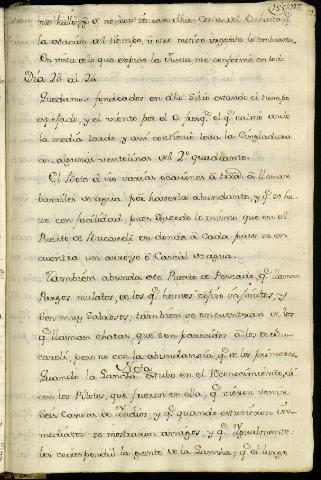 la estacion del tiempo, ù otro motivo urgente lo embarace.
En vista de lo que expresa la Junta me conformé en todo
Dia 23 al 24
Quedamos fondeados en dho Sitio estando el tiempo
y el viento por el O. fresq.to el q.e calmó
la media tarde, y assi continuó toda la Singladura
con algunas ventolinas del 2.º quadrante.
El Bote à ido varias ocasiones à tierra à llenar
barriles de agua por haverla abundante, y q.e se ha-
ze con facilidad pues sucede lo mismo que en el
Puerto de Bucareli en donde à cada paso se en-
cuentra un arroyo ò Cascàl de agua.
Tambien abunda este Puerto de Pescado q.e llaman
Pargos mulatos, de los q.e hemos cojido infinitos; y
son muy Sabrosos; tambien se encuentran de los
q.e llaman chatas, que son parecidos à los de Bu-
careli, pero no con la abundancia q.e de los primeros.
Nota
Quando la Lancha estubo en el Reconocimiento, di-
cen los Pilotos, que fueron en ella, q.e vieron venir
seis Canoas de Indios, y q.e quando estuvieron in-
mediatos se mostraron amigos, y q.e igualmente
les correspondiò la gente de la Lancha; q.e el luego